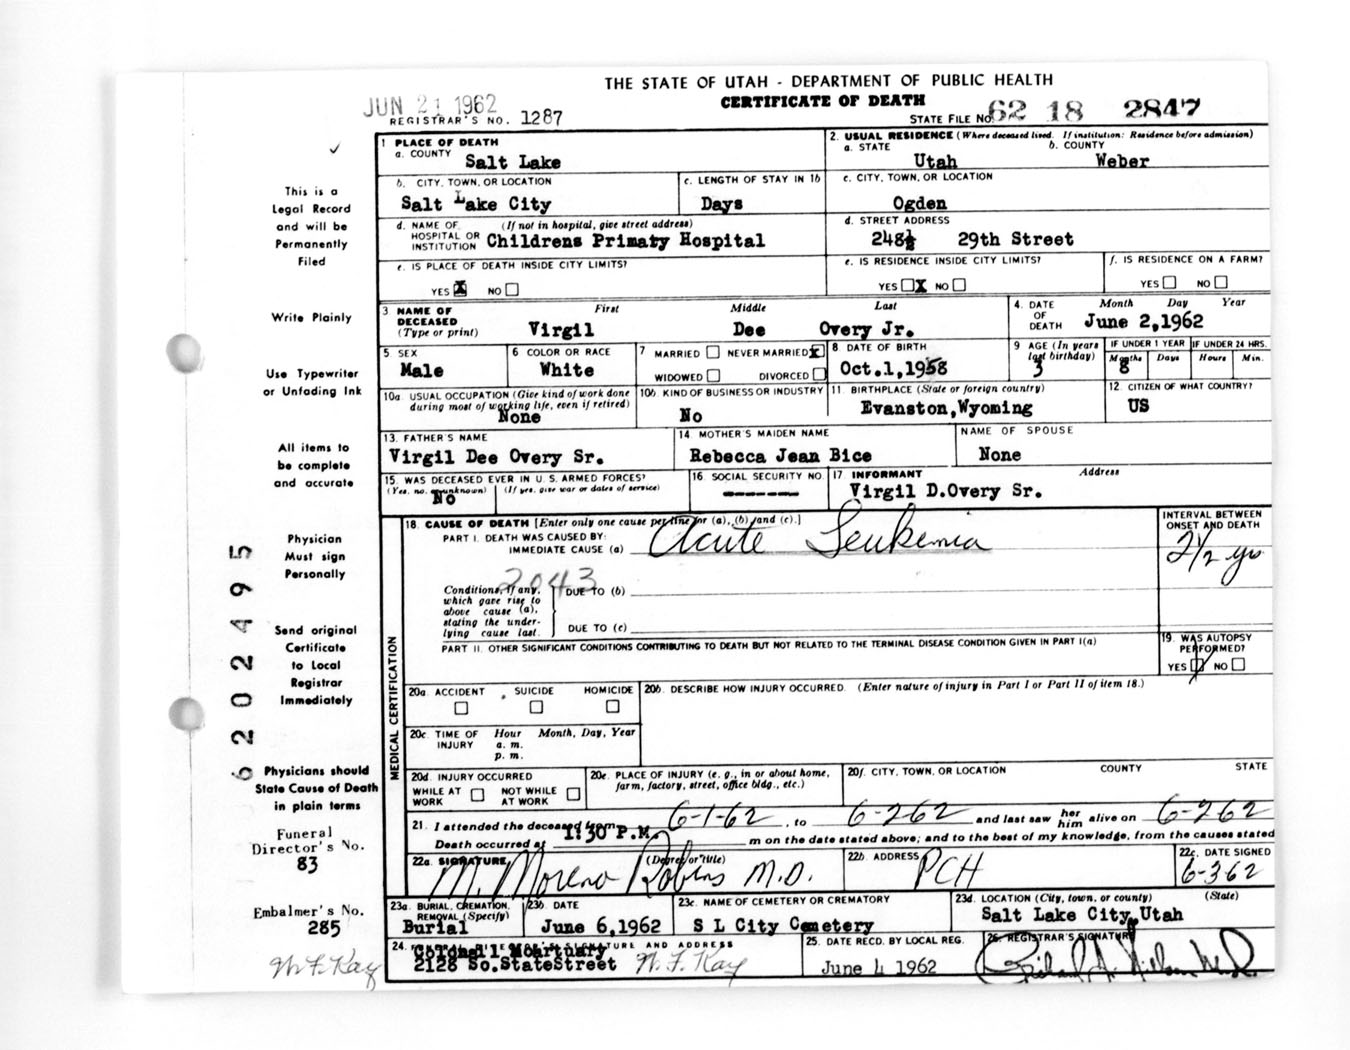 THE STATE OF UTAH - DEPARTMENT OF PUBLIC HEALTH
JUN 21 1962
CERTIFICATE OF DEATH
REGISTRAR'S NO. 1287
STATE FILE NO. 62 18 2847
1 PLACE OF DEATH
a. COUNTY Salt Lake
2. USUAL RESIDENCE (Where deceased lived. If institution: Residence before admission)
a. STATE Utah b. COUNTY Weber
b. CITY, TOWN, OR LOCATION Salt Lake City
c. LENGTH OF STAY IN 1b Days
c. CITY, TOWN, OR LOCATION Ogden
d. NAME OF HOSPITAL OR INSTITUTION (If not in hospital, give street address) Childrens Primary Hospital
d. STREET ADDRESS 248½ 29th Street
e. IS PLACE OF DEATH INSIDE CITY LIMITS?
YES X NO
e. IS RESIDENCE INSIDE CITY LIMITS?
YES X NO
f. IS RESIDENCE ON A FARM?
YES NO
3 NAME OF DECEASED (Type or print)
First Middle Last
Virgil Dee Overy Jr.
4. DATE OF DEATH Month Day Year
June 2,1962
5 SEX Male
6 COLOR OR RACE White
7 MARRIED NEVER MARRIED X
WIDOWED DIVORCED
8 DATE OF BIRTH Oct.1,1958
9 AGE (In years last birthday) 3
IF UNDER 1 YEAR Months Days 8
IF UNDER 24 HRS. Hours Min.
10a. USUAL OCCUPATION (Give kind of work done during most of working life, even if retired) None
10b. KIND OF BUSINESS OR INDUSTRY No
11 BIRTHPLACE (State or foreign country) Evanston,Wyoming
12. CITIZEN OF WHAT COUNTRY? US
13. FATHER'S NAME Virgil Dee Overy Sr.
14. MOTHER'S MAIDEN NAME Rebecca Jean Bice
NAME OF SPOUSE None
15. WAS DECEASED EVER IN U.S. ARMED FORCES?
(Yes, no, or unknown) (If yes, give war or dates of service) No
16. SOCIAL SECURITY NO. -------
17 INFORMANT Address
Virgil D.Overy Sr.
18. CAUSE OF DEATH [Enter only one cause per line for (a), (b) and (c).]
INTERVAL BETWEEN ONSET AND DEATH
PART I. DEATH WAS CAUSED BY:
IMMEDIATE CAUSE (a) Acute Leukemia 2½ yrs
2043
Conditions, if any, which gave rise to above cause (a), stating the underlying cause last.
DUE TO (b)
DUE TO (c)
PART II. OTHER SIGNIFICANT CONDITIONS CONTRIBUTING TO DEATH BUT NOT RELATED TO THE TERMINAL DISEASE CONDITION GIVEN IN PART I(a)
19. WAS AUTOPSY PERFORMED?
YES NO
MEDICAL CERTIFICATION
20a. ACCIDENT SUICIDE HOMICIDE
20b. DESCRIBE HOW INJURY OCCURRED. (Enter nature of injury in Part I or Part II of item 18.)
20c. TIME OF INJURY Hour Month, Day, Year
a. m.
p. m.
20d. INJURY OCCURRED
WHILE AT WORK NOT WHILE AT WORK
20e. PLACE OF INJURY (e. g., in or about home, farm, factory, street, office bldg., etc.)
20f. CITY, TOWN, OR LOCATION COUNTY STATE
21. I attended the deceased from 6-1-62, to 6-2-62 and last saw her him alive on 6-2-62
Death occurred at 1:30 P.M. m on the date stated above; and to the best of my knowledge, from the causes stated
22a. SIGNATURE (Degree or title) M. Moreno Robins M.D.
22b. ADDRESS PCH
22c. DATE SIGNED 6-3-62
23a. BURIAL, CREMATION, REMOVAL (Specify) Burial
23b. DATE June 6,1962
23c. NAME OF CEMETERY OR CREMATORY S L City Cemetery
23d. LOCATION (City, town, or county) (State)
Salt Lake City, Utah
24. FUNERAL DIRECTOR'S SIGNATURE AND ADDRESS
Colonial Mortuary
2128 So.StateStreet W. F. Kay
25. DATE RECD. BY LOCAL REG. June 4 1962
26. REGISTRAR'S SIGNATURE
This is a
Legal Record
and will be
Permanently
Filed
Write Plainly
Use Typewriter
or Unfading Ink
All items to
be complete
and accurate
Physician
Must sign
Personally
Send original
Certificate
to Local
Registrar
Immediately
Physicians should
State Cause of Death
in plain terms
Funeral
Director's No.
83
Embalmer's No.
285
W. F. Kay
62 02495